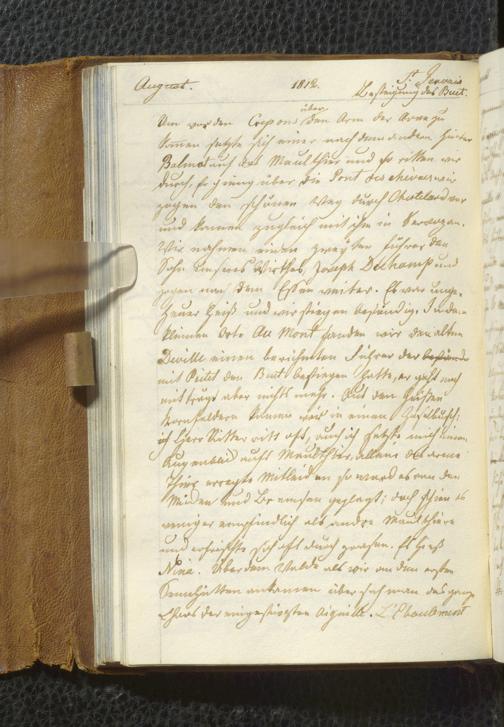 August. 1812. St. Gervais
Besteigung des Buet.
Um vor den über den Arm der Arve zu
kommen setzte sich einer nach dem andern hinter
Balmat auf das Maulthier und so ritten wir
durch, es gieng über die Pont des chevres wir
zogen den schönen Weg durch Chatelard
und kamen zugleich mit ihm in Servozan.
Wir nahmen einen zweyten Führer den
Sohn unsers Wirthes, Joseph Dechamp und
zogen nach dem Essen weiter. Es war unge-
heuer heiß und wir stiegen beständig. In dem
kleinen Orte Au Mont fanden wir den alten
Deville einen berühmten Führer der
mit Pictet den Buet bestiegen hatte, er geht noch
mit trägt aber nichts mehr. Aus den heißen
Kornfeldern kamen wir in einen
ich Herr Ritter ritt oft, auch ich setzte mich einen
Augenblick aufs Maulthier, allein das arme
Thier erregte Mitleiden so ward es von den
und Bremsen geplagt; doch schien es
weniger empfindlich als andre Maulthiere
und erfrischte sich oft durch grasen. Es hieß
Nina. Über dem Walde als wir an den ersten
Sennhütten ankamen übersah man das ganze
Chaos der eingestürzten Aiguille. L'Echaulemont